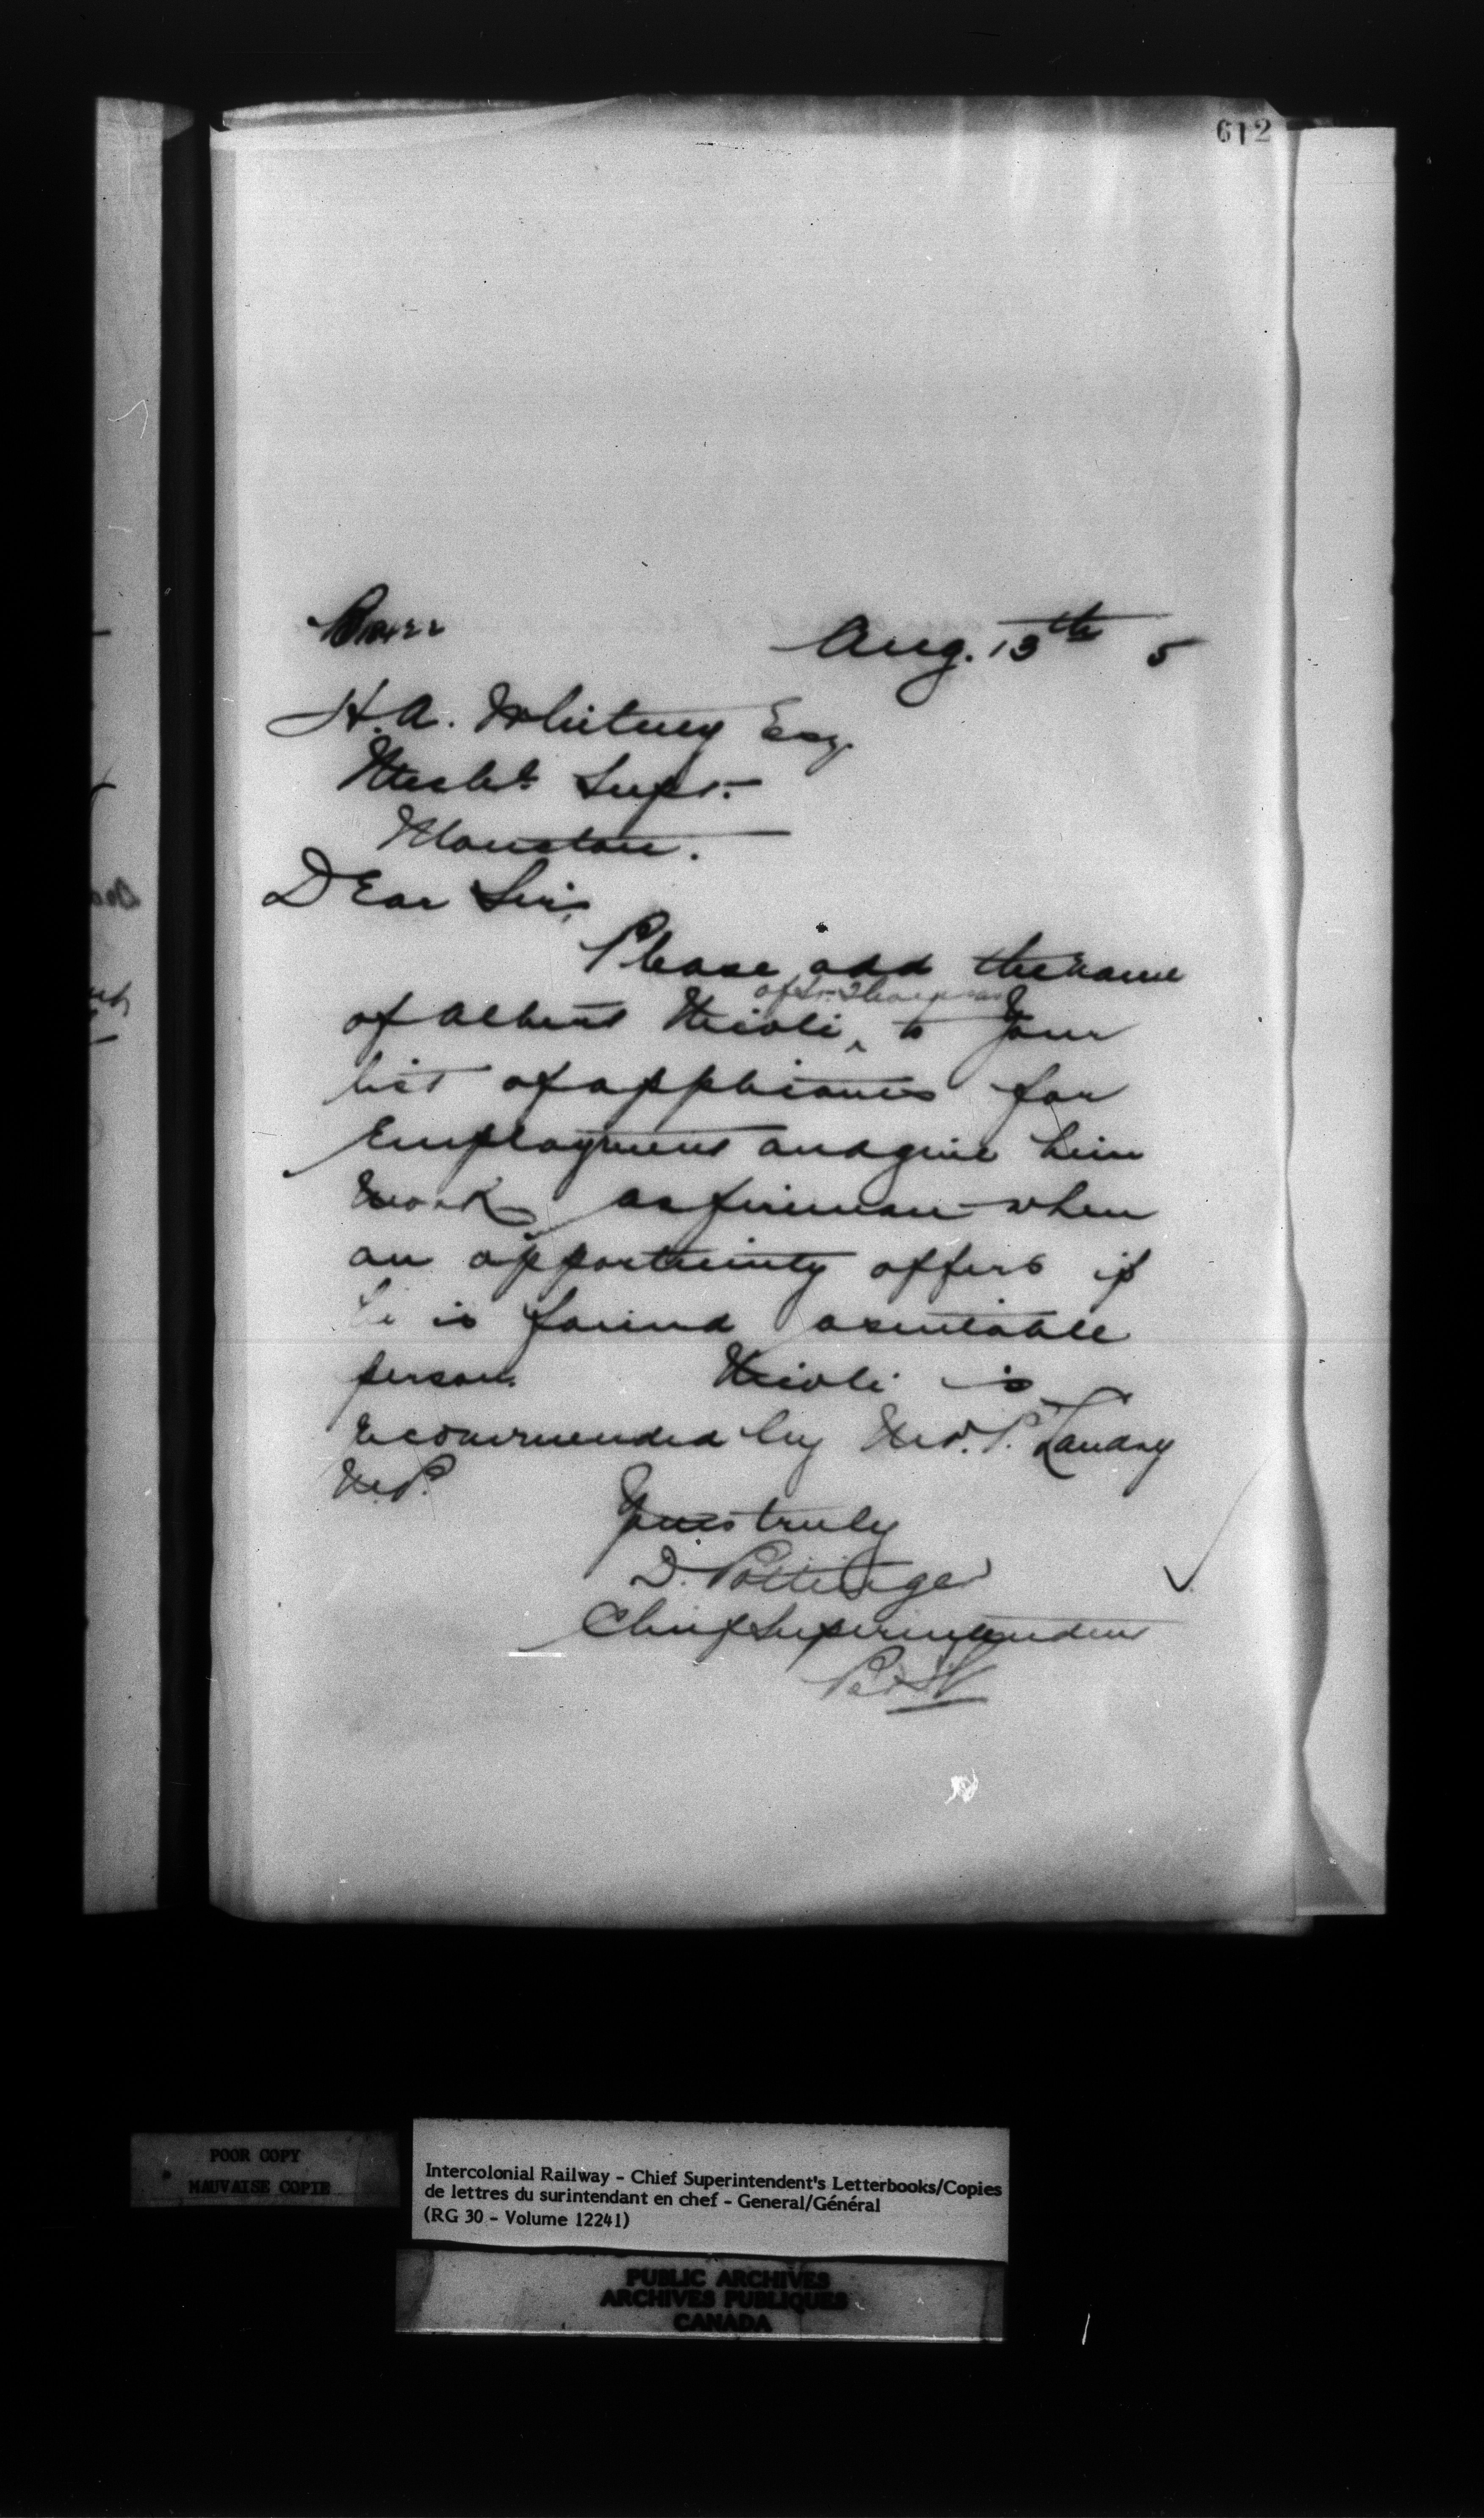 612
Aug. 13th 5
H.A. Whitney Esq.
Mechl. Supt.
Moncton.
Dear Sir,
Please add the name
of Albert
of to your
list of applicants for
Employment and give him
work as fireman when
an opportunity offers if
he is found a suitable
person. is
recommended by Mr. P. Landry
M.P.
Yours truly
D. Pottinger
Chief Superintendent
POOR COPY
MAUVAISE COPIE
Intercolonial Railway - Chief Superintendent's Letterbooks/Copies
de lettres du surintendant en chef - General/Général
(RG 30 - Volume 12241)
PUBLIC ARCHIVES
ARCHIVES PUBLIQUES
CANADA